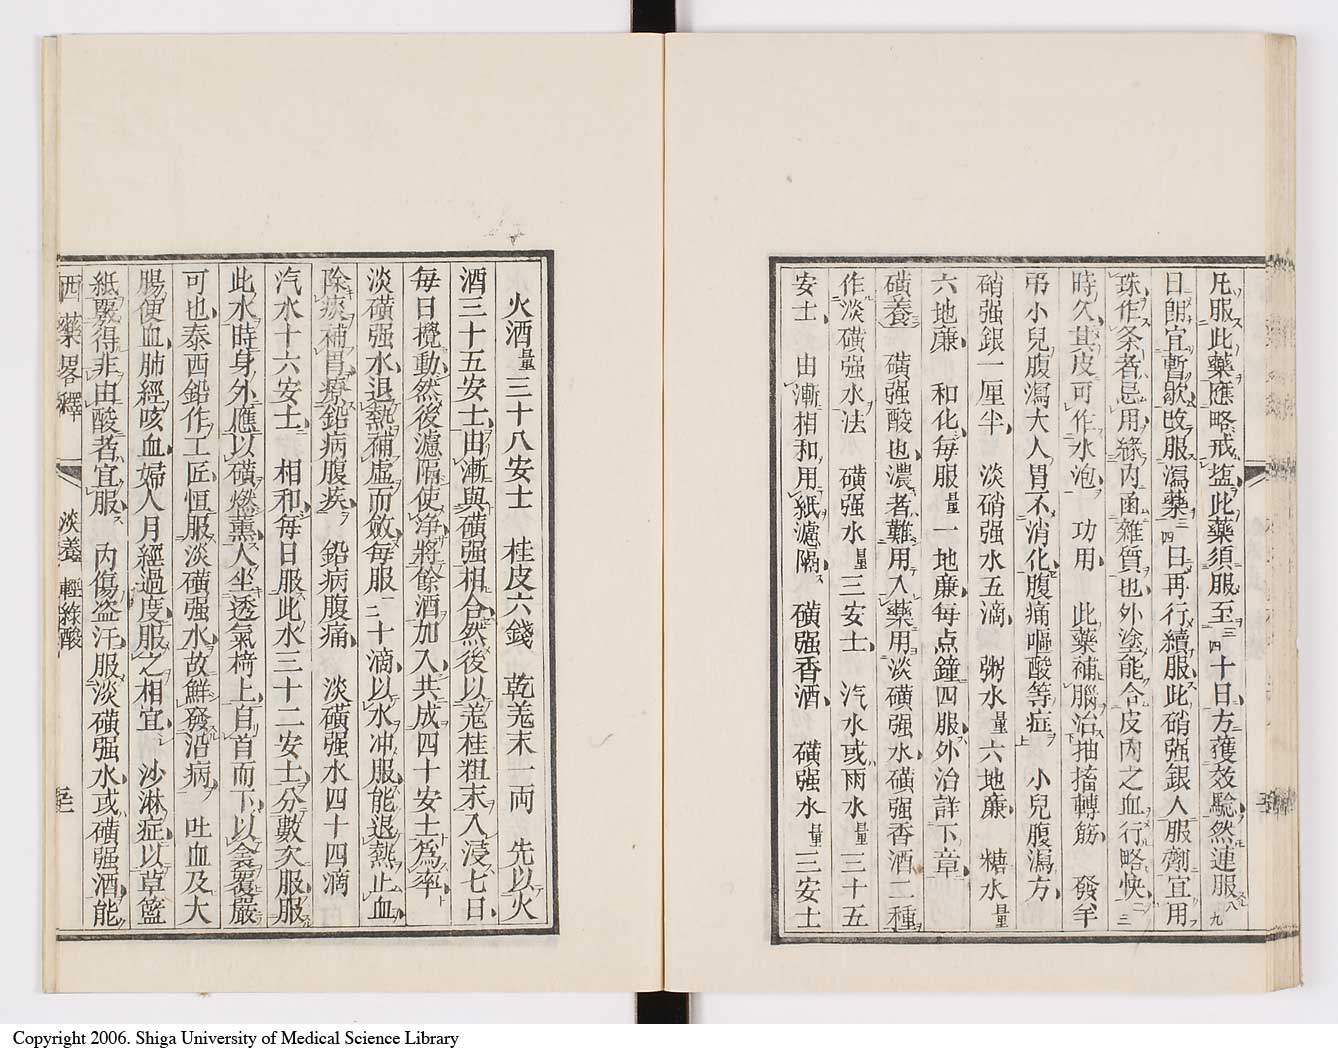 凡服此藥應略戒塩此藥須服至三四十日方獲效驗然連服八九
日開宜暫歇改服瀉藥三四日再行續服此硝强銀人服劑宜用
珠作条者忌用緣內函雜質也外塗能合皮內之血行略快二三
時久其皮可作水泡 功用 此藥補腦治抽搐轉筋 發羊
吊小兒腹瀉大人胃不消化腹痛嘔酸等症 小兒腹瀉方
硝强銀一厘半 淡硝强水五滴 粥水量六地廉 糖水量
六地廉 和化每服量一地廉每点鐘四服外治詳下章
磺養 磺强酸也濃者難用入藥用淡磺强水磺强香酒二種
作淡磺强水法 磺强水量三安士 汽水或雨水量三十五
安士 由漸相和用紙濾隔 磺强香酒 磺强水量三安士
火酒量三十八安士 桂皮六錢 乾羗末一両 先以火
酒三十五安士由漸與磺强相合然後以羗桂粗末入浸七日
每日攪動然後濾隔使淨將餘酒加入共成四十安士爲率
淡磺强水退熱補虛而斂每服二十滴以水冲服能退熱止血
除痰補胃療鉛病腹疾 鉛病腹痛 淡磺强水四十四滴
汽水十六安士 相和每日服此水三十二安士分數次服服
此水時身外應以磺燃薰人坐透氣椅上自首而下以衾覆嚴
可也泰西鉛作工匠恒服淡磺强水故鮮發沿病 吐血及大
腸便血肺經咳血婦人月經過度服之相宜 沙淋症以草籃
紙驟得非由酸者宜服 內傷盗汗服淡磺强水或磺强酒能
西藥畧釋 淡養 輕綠酸
Copyright 2006. Shiga University of Medical Science Library